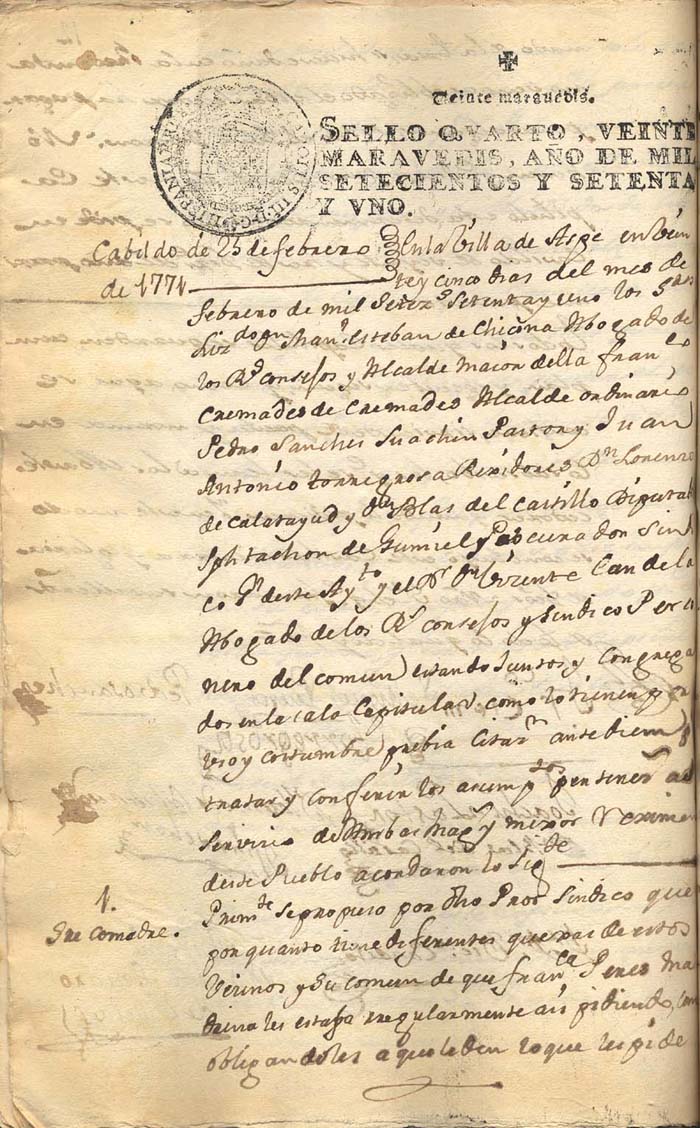 Veinte marauedis.
SELLO QVARTO, VEINTE
MARAVEDIS, AÑO DE MIL
SETECIENTOS Y SETENTA
Y VNO.
CAROLUS III D G HISPANIAR
Cabildo de 25 de febrero
de 1771
En la Villa de Aspe en vein
te y cinco dias del mes de
febrero de mil Setezs Setenta y uno los Sres
Lizdo Dn Manl Esteban de Chicona Abogado de
los Rs consejos y Alcalde maior della Franco
Cremades de Cremades Alcalde ordinario
Pedro Sanches Juachin Pastor y Juan
Antonio torregrosa Rexidores Dn Lorenzo
de Calatayud y Dn Blas del Castillo Diputa
de Gumiel Procurador Sin
co Gl deste Aytto y el Dr Dn Vizente Candela
Abogado de los Rs consejos y Sindico Perso
nero del comun estando Juntos y Congrega
dos en la sala Capitular como lo tienen de
vso y costumbre prebia Citazn antediem
tratar y conferir los asumptos pertenes al
servicio de Ambas Mags y mexor Reximen
deste Pueblo acordaron lo sigte
1.
Sre Comadre.
Primte se propuso por dho Pror Sindico que
por quanto tiene diferentes quexas de estos
Vezinos y su comun de que franca Peres Ma
drina les estafa irregularmente asi pidiendo, como
obligandoles a que le den lo que les pide